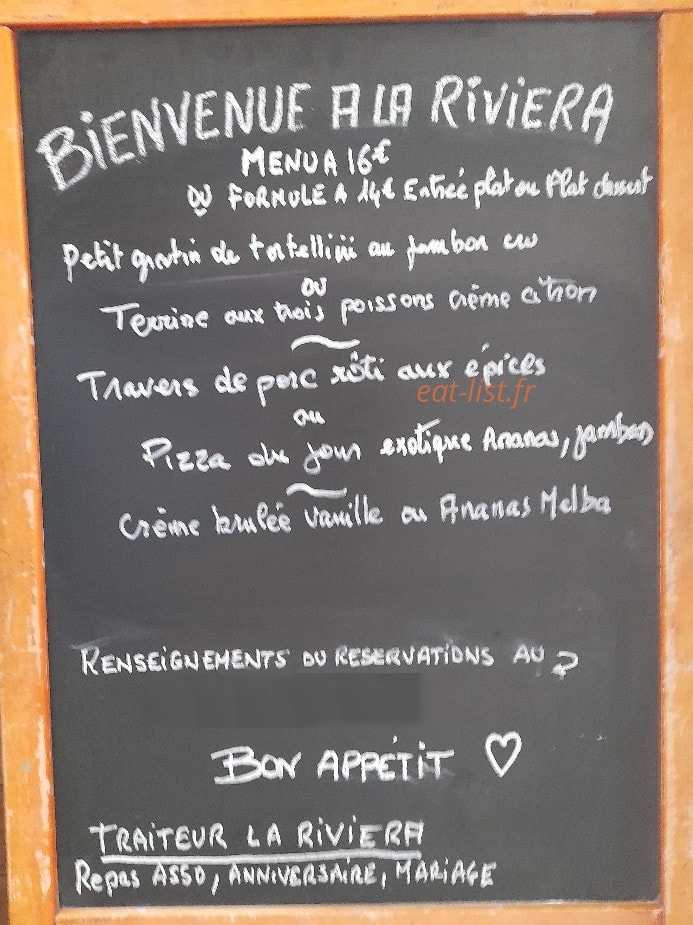 BIENVENUE A LA RIVIERA
MENU A 16€
OU FORMULE A 14€ Entrée plat ou Plat dessert
Petit gratin de tortellini au jambon cru
ou
Terrine aux trois poissons crème citron
~
Travers de porc rôti aux épices
eat-list.fr
ou
Pizza du jour exotique Ananas, jambon
~
Crème brulée vanille ou Ananas Melba
RENSEIGNEMENTS OU RESERVATIONS AU
BON APPÉTIT ♡
TRAITEUR LA RIVIERA
Repas ASSO, ANNIVERSAIRE, MARIAGE